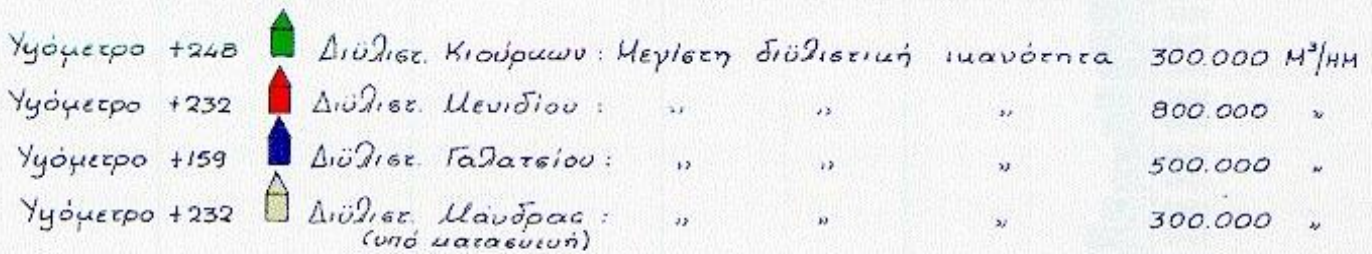 Υψόμετρο +248 Διϋλιστ. Κιούρκων : Μεγίστη διϋλιστική ικανότητα 300.000 Μ³/ΗΜ
Υψόμετρο +232 Διϋλιστ. Μενιδίου : " " " 800.000 "
Υψόμετρο +159 Διϋλιστ. Γαλατσίου : " " " 500.000 "
Υψόμετρο +232 Διϋλιστ. Μάνδρας : " " " 300.000 "
(υπό κατασκευή)